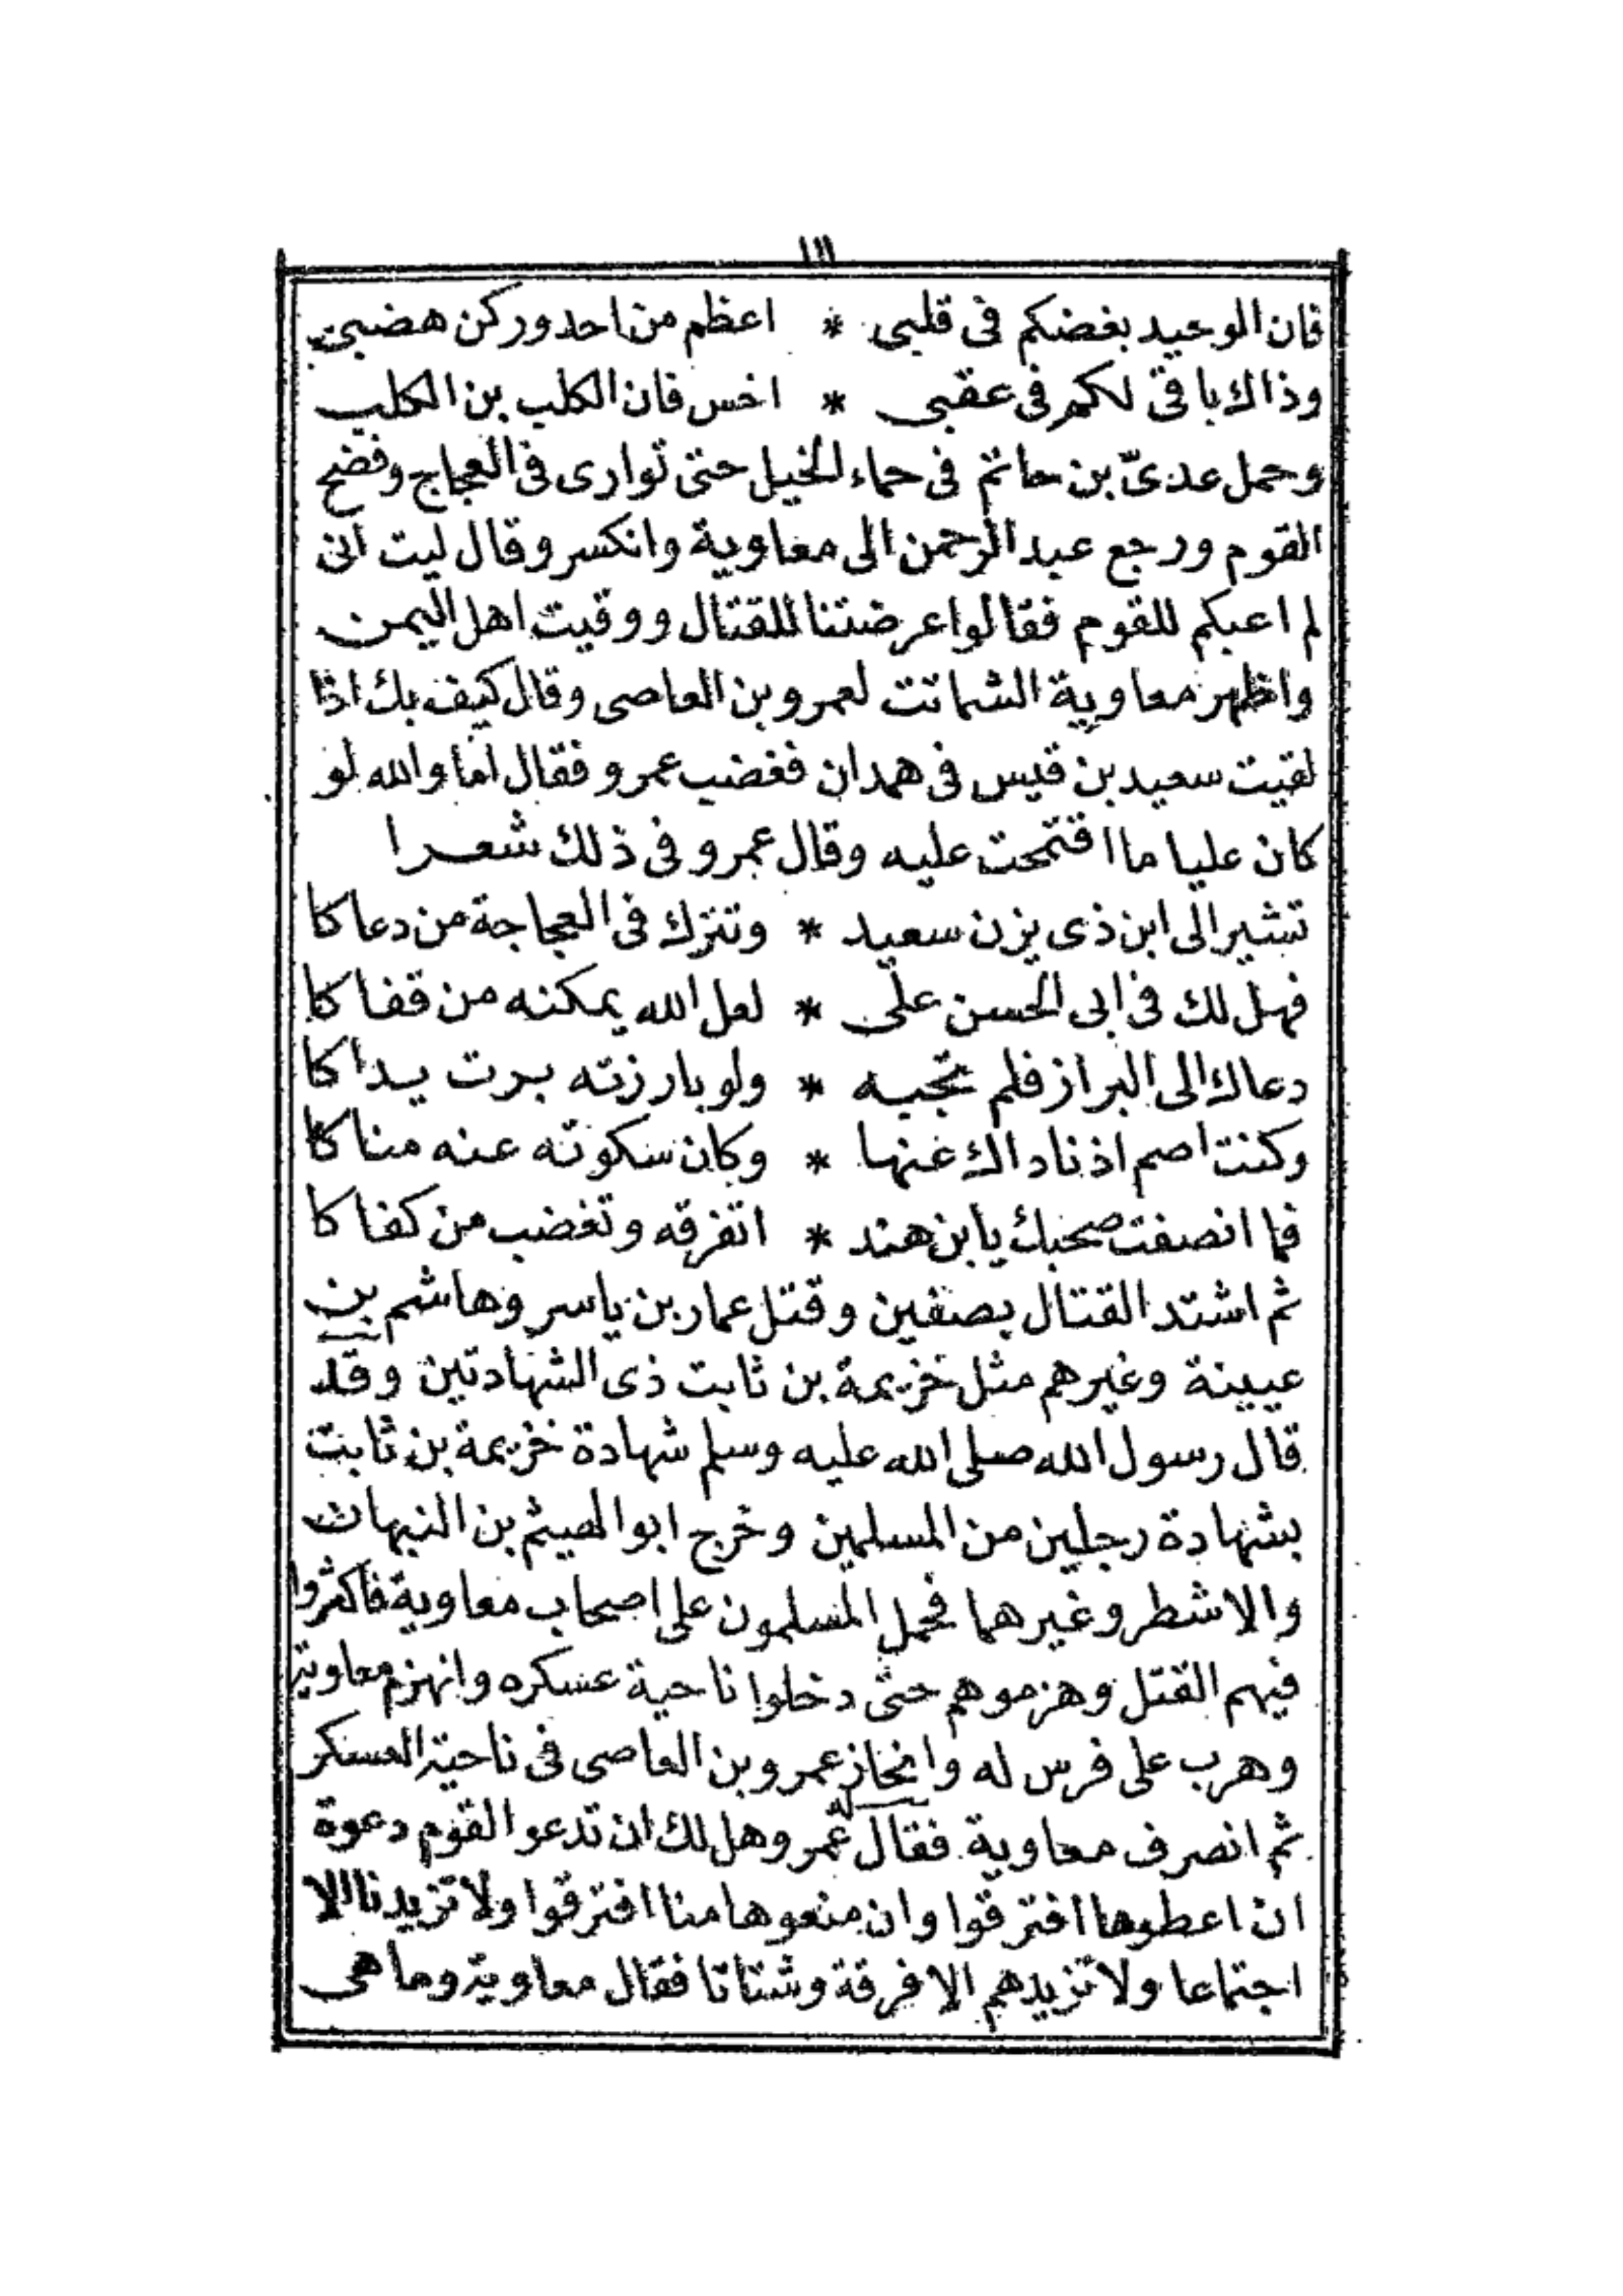 ١١١
فان الوعيد بغضكم فى قلبى * اعظم من احد وركن هضبى
وذاك باقى لكم فى عقبى * اخس فان الكلب بن الكلب
وحمل عدىّ بن حاتم فى حماء الخيل حتى توارى فى العجاج وفضح
القوم ورجع عبد الرحمن الى معاوية وانكسر وقال ليت انى
لم اعبكم للقوم فقالوا عرضتنا للقتال ووقيت اهل اليمن
واظهر معاوية الشماتت لعمرو بن العاصى وقال كيف بك اذا
لقيت سعيد بن قيس فى همدان فغضب عمرو فقال اما والله لو
كان عليا ما اقتحمت عليه وقال عمرو فى ذلك شعرا
تشير الى ابن ذى يزن سعيد * وتترك فى العجاجة من دعاكا
فهل لك فى ابى الحسن على * لعل الله يمكنه من قفاكا
دعاك الى البراز فلم تجبه * ولو بارزته برت يداكا
وكنت اصم اذ ناداك عنها * وكان سكوته عنه مناكا
فما انصفت صحبك يا بن هند * اتفرقه وتغضب من كفاكا
ثم اشتد القتال بصفين وقتل عمار بن ياسر وهاشم بن
عيينة وغيرهم مثل خزيمة بن ثابت ذى الشهادتين وقد
قال رسول الله صلى الله عليه وسلم شهادة خزيمة بن ثابت
بشهادة رجلين من المسلمين وخرج ابو الهيثم بن النيهان
والاشطر وغيرهما فحمل المسلمون على اصحاب معاوية فاكثروا
فيهم القتل وهزموهم حتى دخلوا ناحية عسكره وانهزم معاوية
وهرب على فرس له وانحاز عمرو بن العاصى فى ناحية العسكر
ثم انصرف معاوية فقال له عمرو هل لك ان تدعو القوم دعوة
ان اعطوها افترقوا وان منعوها منا افترقوا ولا تزيدنا الا
اجتماعا ولا تزيدهم الا فرقة وشتاتا فقال معاوية وما هى